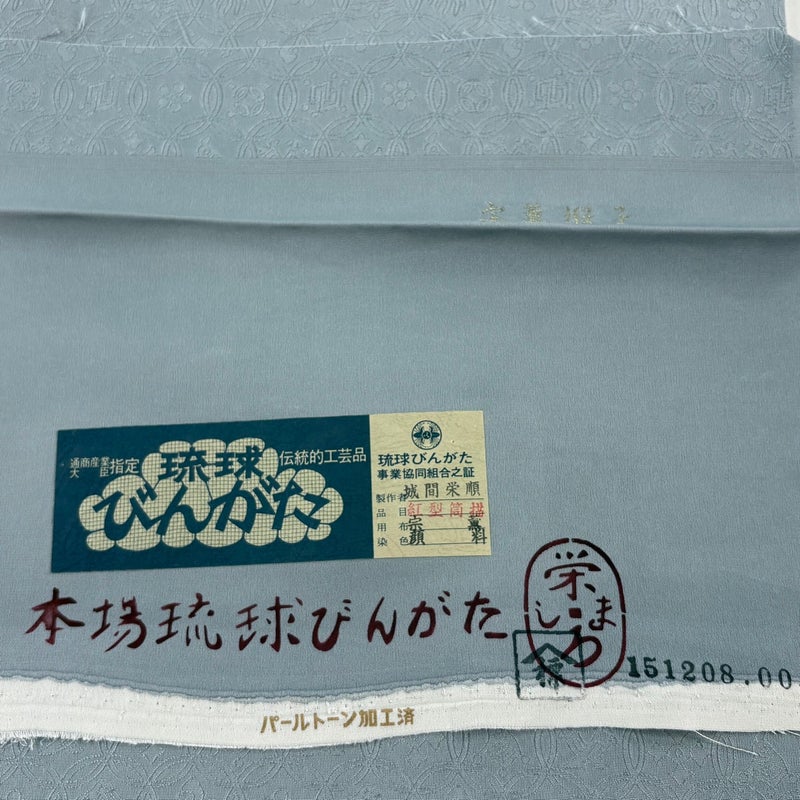 通商産業大臣指定
琉球びんがた
伝統的工芸品
琉球びんがた
事業協同組合之証
製作者 城間栄順
品目 紅型筒描
用布
染色 顔料
本場琉球びんがた
栄
しろま
151208.00
パールトーン加工済